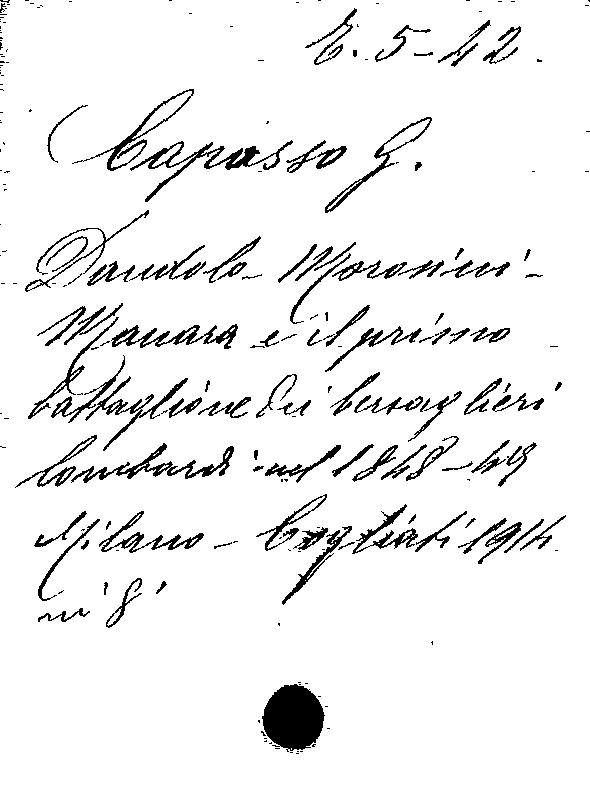 E. 5-42.
Capasso G.
Dandolo - Morosini -
Manara e il primo
battaglione dei bersaglieri
lombardi nel 1848-49
Milano - Cogliati 1914
in 8°